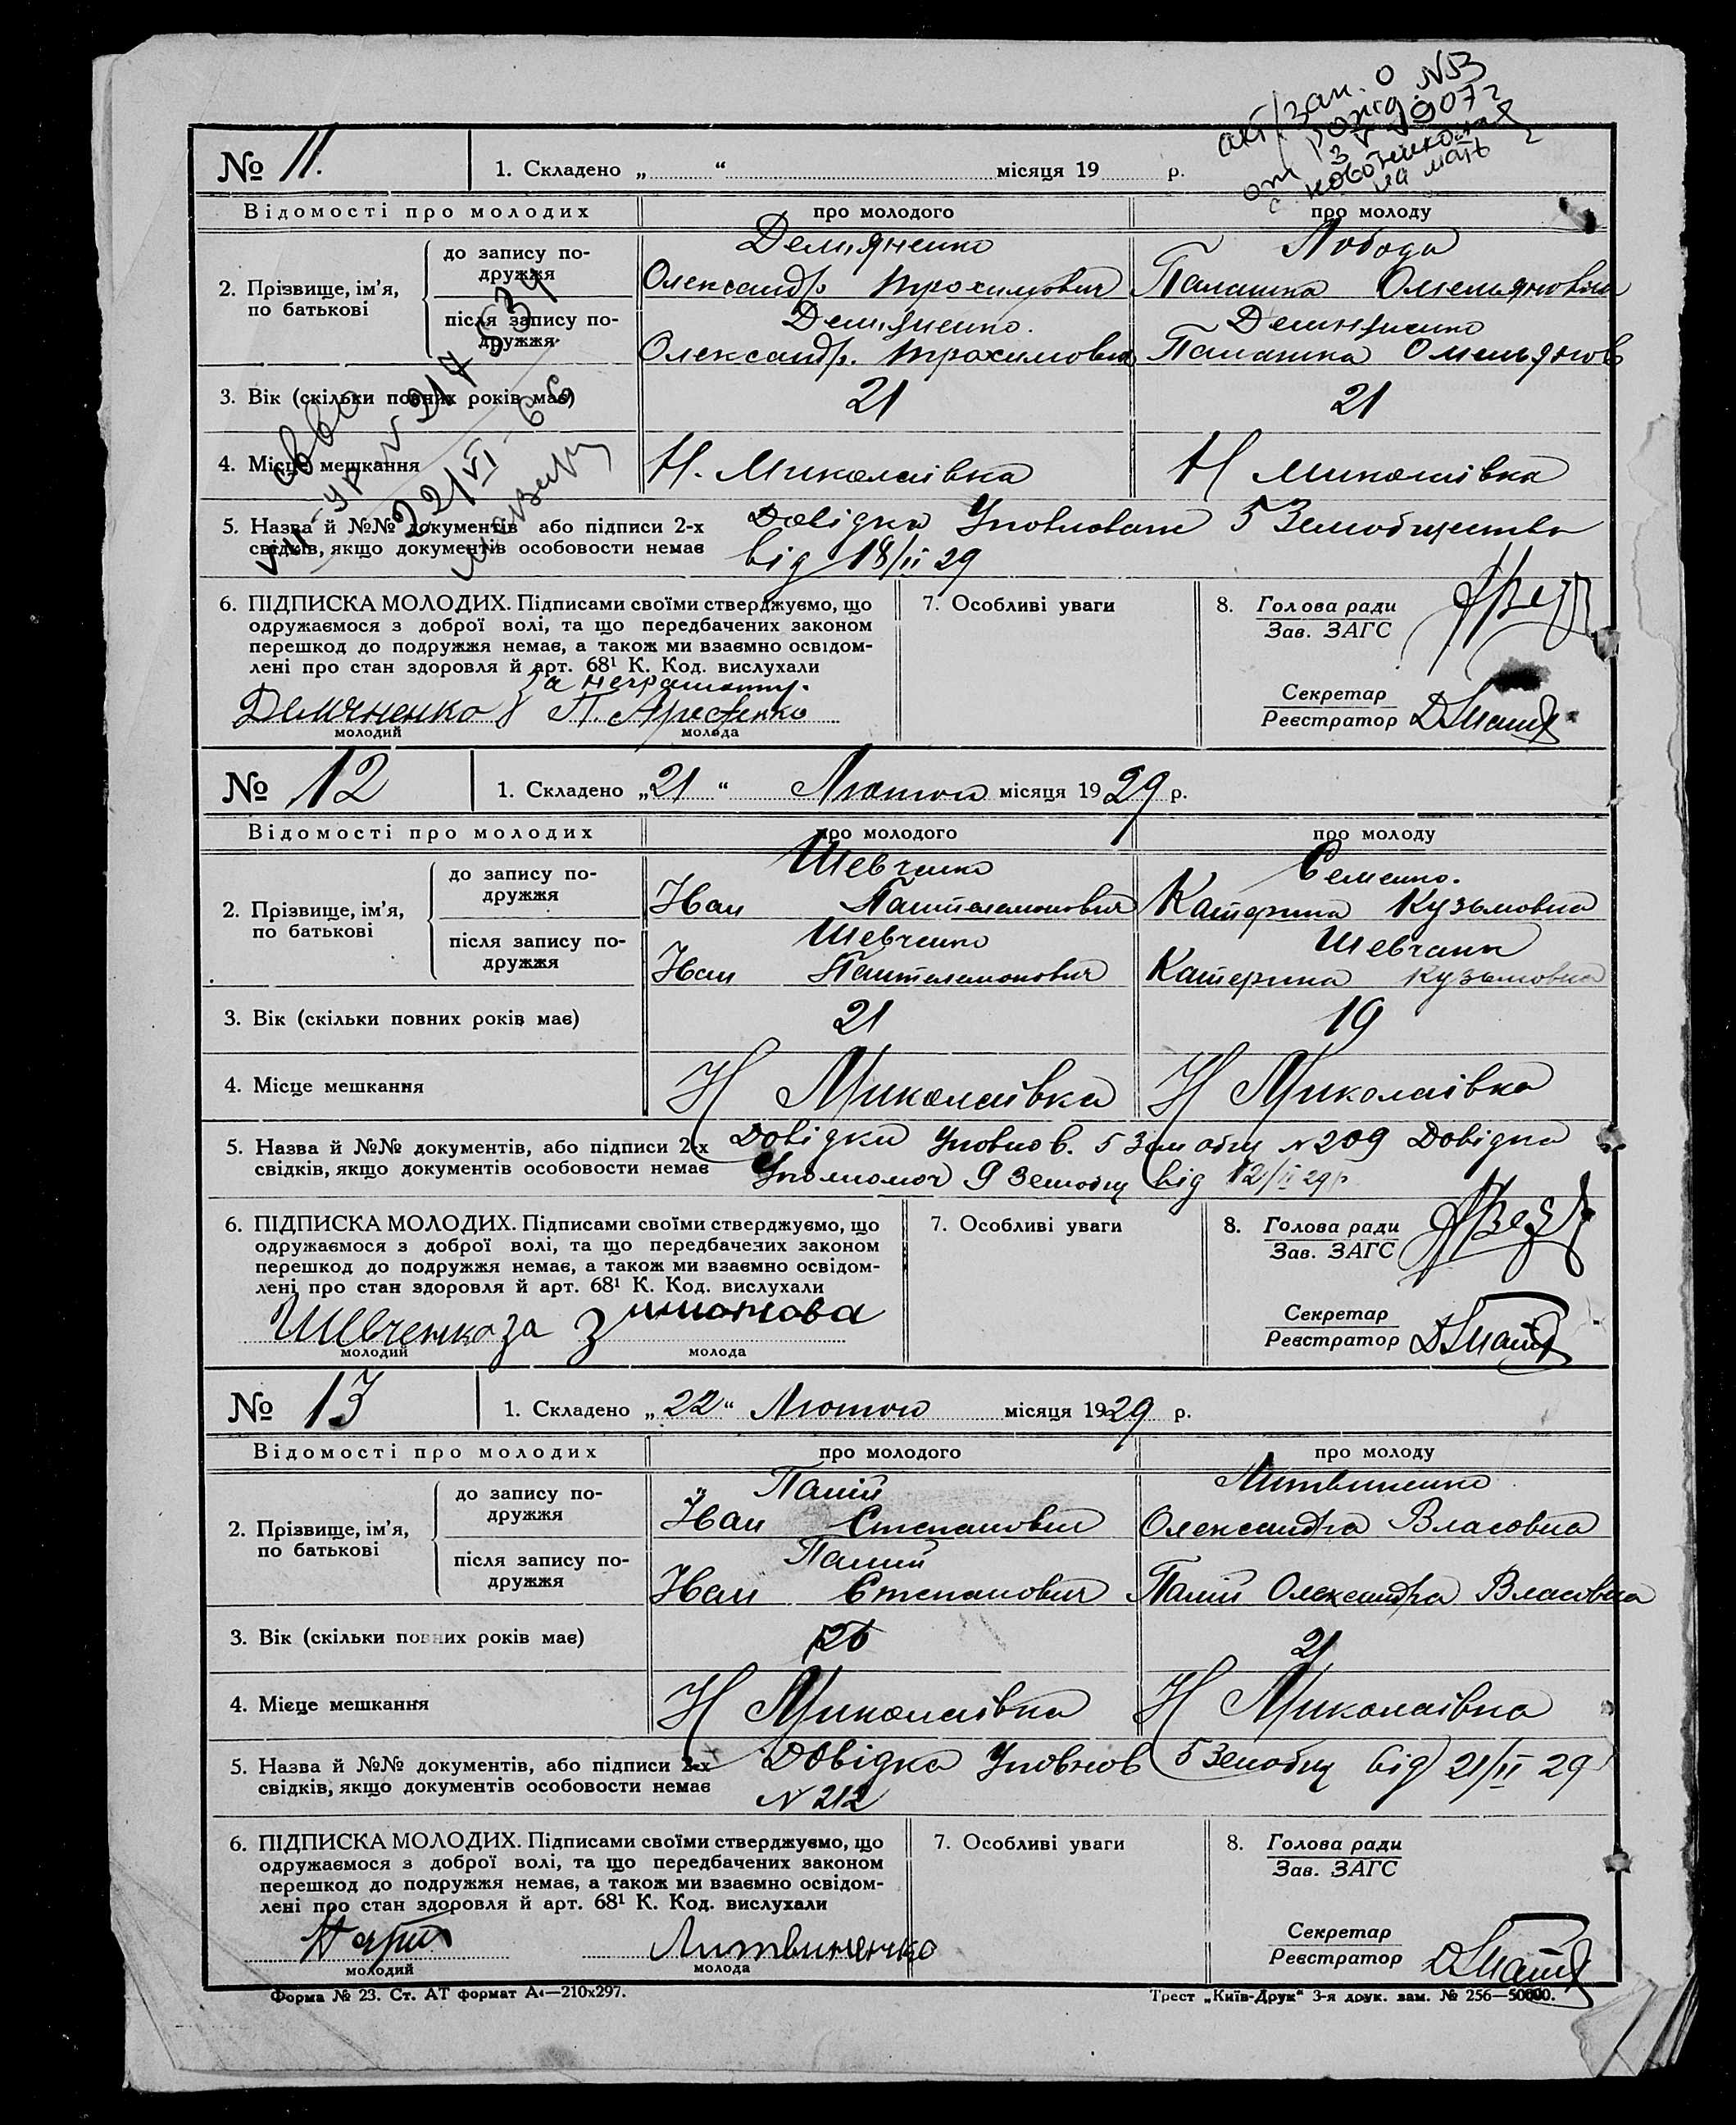 акт/зап. о
рожд. №53
от 3 V 1907 г
№ 11. 1. Складено „ “ місяця 19 р.
Відомості про молодих про молодого про молоду
Демяненко Лобода
до запису подружжя Олександр Трохимович Палашка Омеляновна
2. Прізвище, ім’я, по батькові
Демяненко. Демяненко
після запису подружжя Олександр. Трохимович Палашка Омельянов
3. Вік (скільки повних років має) 21 21
4. Місце мешкання Н. Миколаівка Н Миколаівка
5. Назва й №№ документів або підписи 2-х Довідка Уповноваж 5 Земобщества
свідків, якщо документів особовости немає від 18/II 29
22/VI-66
6. ПІДПИСКА МОЛОДИХ. Підписами своїми стверджуємо, що
одружаємося з доброї волі, та що передбачених законом
перешкод до подружжя немає, а також ми взаємно освідом-
лені про стан здоровля й арт. 68¹ К. Код. вислухали
за неграмотну.
Демяненко П. Арестенко
молодий молода
7. Особливі уваги
8. Голова ради
Зав. ЗАГС
Секретар
Реєстратор
№ 12 1. Складено „21“ Лютого місяця 1929 р.
Відомості про молодих про молодого про молоду
Шевченко Семенко.
до запису подружжя Іван Панталемонович Катерина Кузьмовна
2. Прізвище, ім’я, по батькові
Шевченко Шевченк
після запису подружжя Іван Панталемонович Катерина Кузьмовна
3. Вік (скільки повних років має) 21 19
4. Місце мешкання Н Миколаівка Н Миколаівка
5. Назва й №№ документів, або підписи 2-х Довідки Уповнов. 5 Зем общ №209 Довідка
свідків, якщо документів особовости немає Уполномоч 9 Земобщ від 12/II 29р
6. ПІДПИСКА МОЛОДИХ. Підписами своїми стверджуємо, що
одружаємося з доброї волі, та що передбачених законом
перешкод до подружжя немає, а також ми взаємно освідом-
лені про стан здоровля й арт. 68¹ К. Код. вислухали
Шевченко за
молодий молода
7. Особливі уваги
8. Голова ради
Зав. ЗАГС
Секретар
Реєстратор
№ 13 1. Складено „22“ Лютого місяця 1929 р.
Відомості про молодих про молодого про молоду
Палій Литвиненко
до запису подружжя Іван Степанович Олександра Власовна
2. Прізвище, ім’я, по батькові
Палій
після запису подружжя Іван Степанович Палій Олександра Власовна
3. Вік (скільки повних років має) 26 21
4. Місце мешкання Н Миколаівка Н Миколаівка
5. Назва й №№ документів, або підписи 2-х Довідка Уповнов 5 Земобщ від 21/II 29
свідків, якщо документів особовости немає № 212
6. ПІДПИСКА МОЛОДИХ. Підписами своїми стверджуємо, що
одружаємося з доброї волі, та що передбачених законом
перешкод до подружжя немає, а також ми взаємно освідом-
лені про стан здоровля й арт. 68¹ К. Код. вислухали
Литвиненко
молодий молода
7. Особливі уваги
8. Голова ради
Зав. ЗАГС
Секретар
Реєстратор
Форма № 23. Ст. АТ формат А₄—210х297. Трест „Київ-Друк“ 3-я друк. зам. № 256—50000.